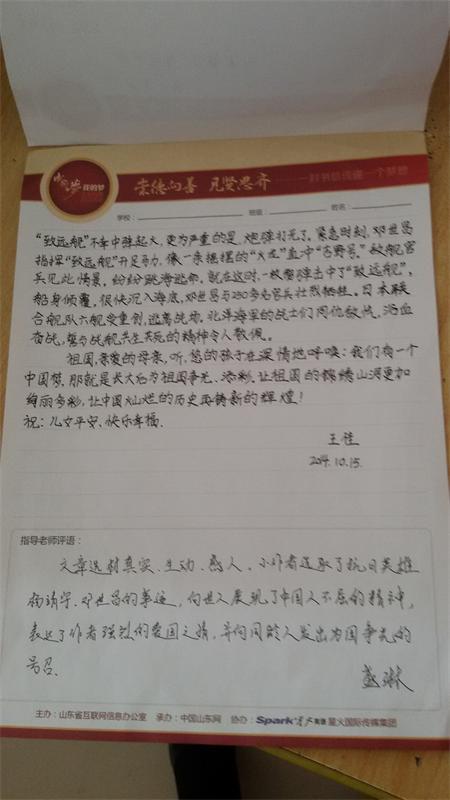 中国梦 我的梦
崇德向善 见贤思齐 一封书信传递一个梦想
学校： 班级： 姓名：
"致远舰"不幸中弹起火，更为严重的是，炮弹打光了，紧急时刻，邓世昌
指挥"致远舰"开足马力，像一条摇摆的"火龙"直冲"吉野号"，敌舰官
兵见此情景，纷纷跳海逃命，就在这时，一枚鱼雷击中了"致远舰"，
船身倾覆，很快沉入海底，邓世昌与250多名官兵壮烈牺牲。日本联
合舰队六舰受重创，逃离战场，北洋海军的战士们同仇敌忾、浴血
奋战，誓与战舰共生共死的精神令人敬佩。
祖国，亲爱的母亲，听，您的孩子在深情地呼唤：我们有一个
中国梦，那就是长大后为祖国争光、添彩，让祖国的锦绣山河更加
绚丽多彩，让中国灿烂的历史再铸新的辉煌！
祝：儿女平安、快乐幸福.
王佳
2014.10.15.
指导老师评语：
文章选材真实、生动、感人，小作者选取了抗日英雄
杨靖宇、邓世昌的事迹，向世人展现了中国人不屈的精神，
表达了作者强烈的爱国之情，并向同龄人发出为国争光的
号召.
盛琳
主办：山东省互联网信息办公室 承办：中国山东网 协办：Spark 星火英语 星火国际传媒集团